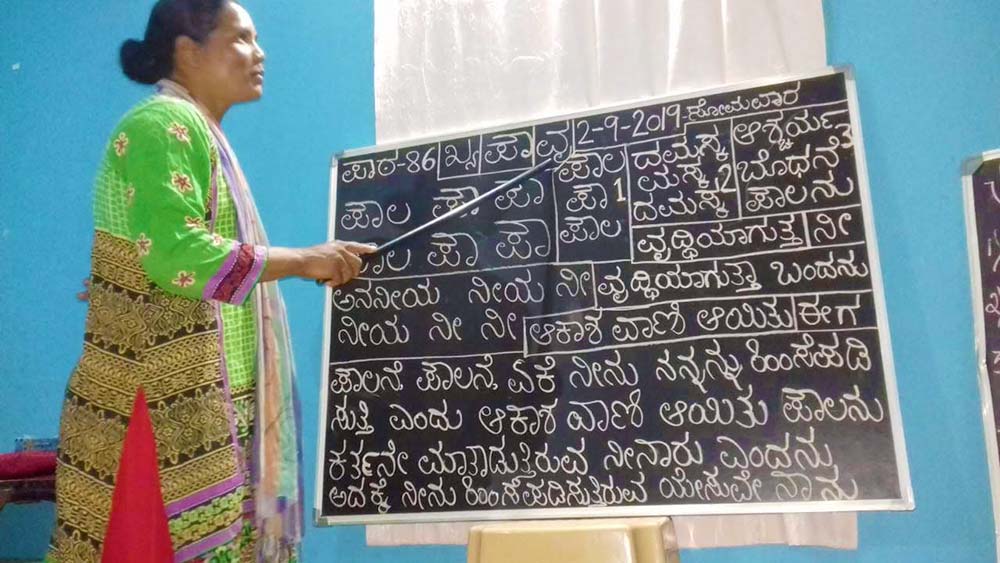 ಪಾಠ-86 ಪೌ ವೃ 2-9-2019 ಸೋಮವಾರ
ಪೌಲ ಪೌ ಪೌ ಪೌಲ ದಮಸ್ಕ ಆಶ್ಚರ್ಯ
ಪೌ 1 ಮಸ್ಕ 2 ಬೋಧನೆ
ಪೌಲ ಪೌ ಪೌ ಪೌಲ ದಮಸ್ಕ ಪೌಲನು
ವೃದ್ಧಿಯಾಗುತ್ತ ನೀ
ಅನನೀಯ ನೀಯ ನೀ ವೃದ್ಧಿಯಾಗುತ್ತಾ ಬಂದನು
ನೀಯ ನೀ ನೀ ಆಕಾಶವಾಣಿ ಆಯಿತು ಈಗ
ಪೌಲನೆ, ಪೌಲನೆ, ಏಕೆ ನೀನು ನನ್ನನ್ನು ಹಿಂಸೆಪಡಿ
ಸುತ್ತಿ ಎಂದು ಆಕಾಶವಾಣಿ ಆಯಿತು ಪೌಲನು
ಕರ್ತನೇ ಮಾತಾಡುತ್ತಿರುವ ನೀನಾರು ಎಂದನು
ಅದಕ್ಕೆ ನೀನು ಹಿಂಸೆಪಡಿಸುತ್ತಿರುವ ಯೇಸುವೇ ನಾನು